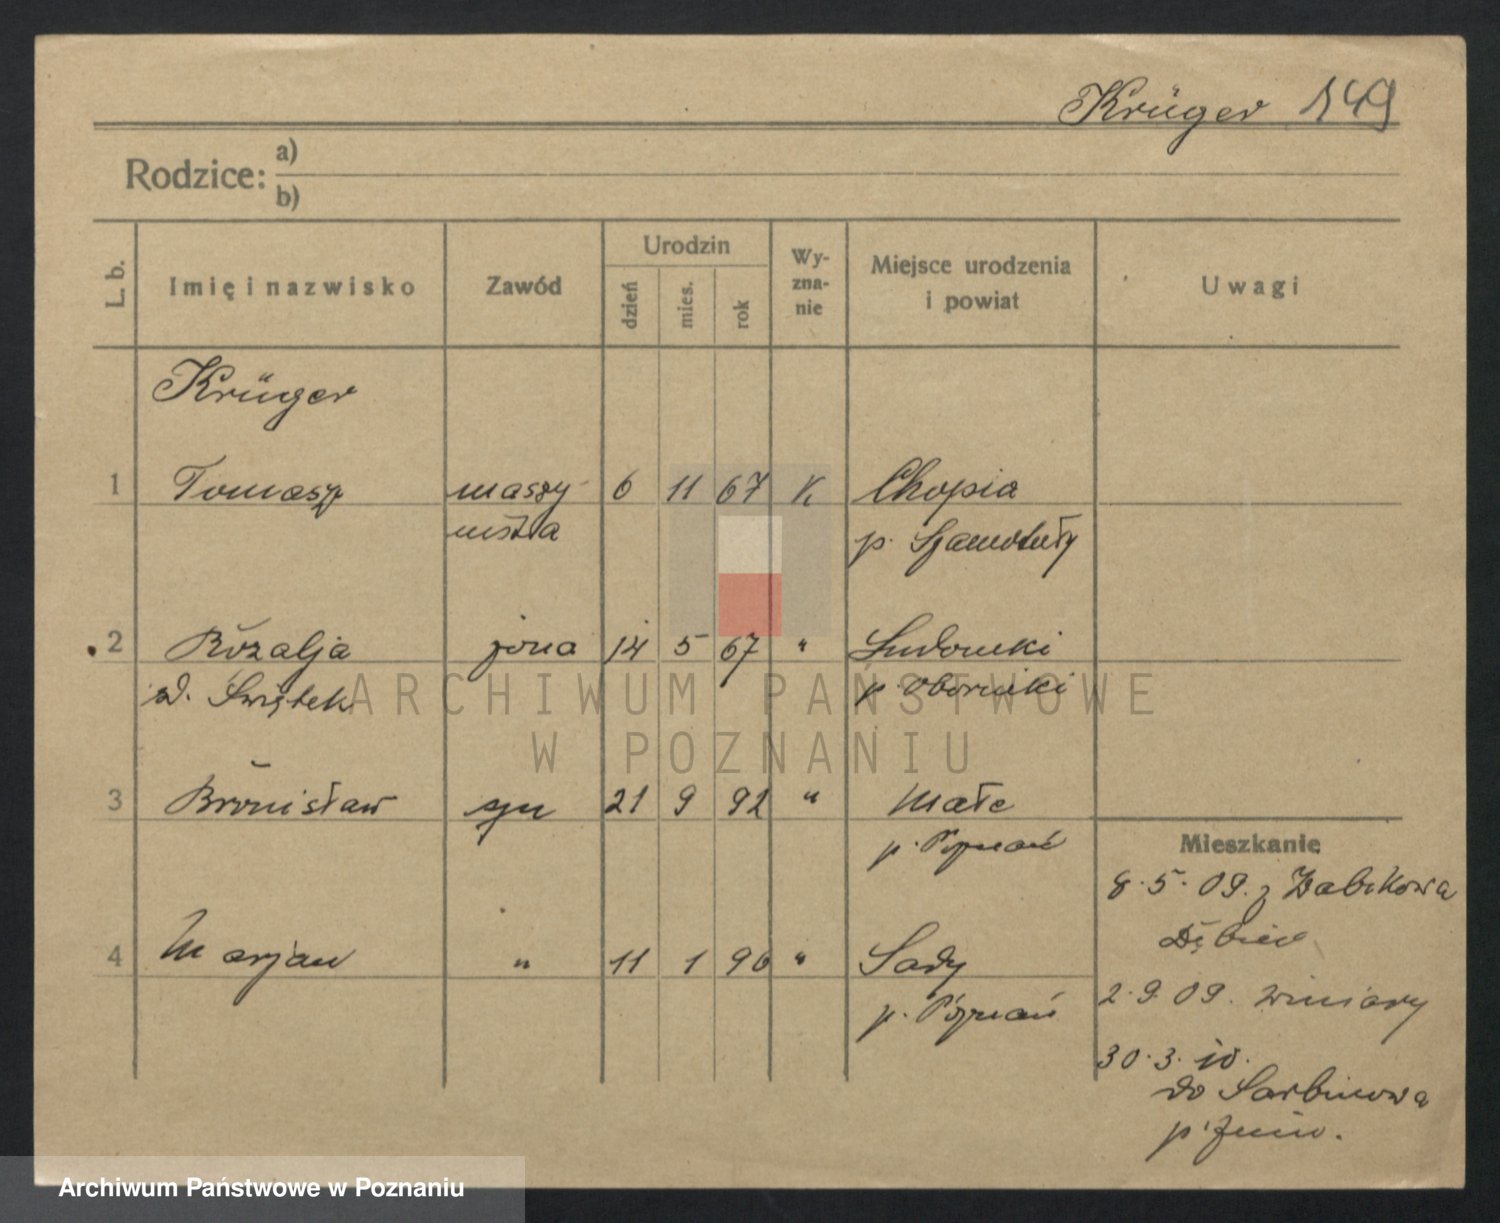 Krüger 149
Rodzice: a)
b)
L. b. Imię i nazwisko Zawód Urodzin dzień mies. rok Wy-zna-nie Miejsce urodzenia i powiat Uwagi
Krüger
1 Tomasz maszy- 6 11 67 K Chopia
nista p. Szamotuły
2 Rozalja żona 14 5 67 " Ludomki
z d. Świętek p. Oborniki
ARCHIWUM PAŃSTWOWE
W POZNANIU
3 Bronisław syn 21 9 92 " Małe
p. Poznań
Mieszkanie
8.5.09. z Żabikowa
Dębiec
4 Marjan " 11 1 96 " Sady
p. Poznań
2.9.09. Winiary
30.3.10.
do Sarbinowa
p. Żnin.
Archiwum Państwowe w Poznaniu